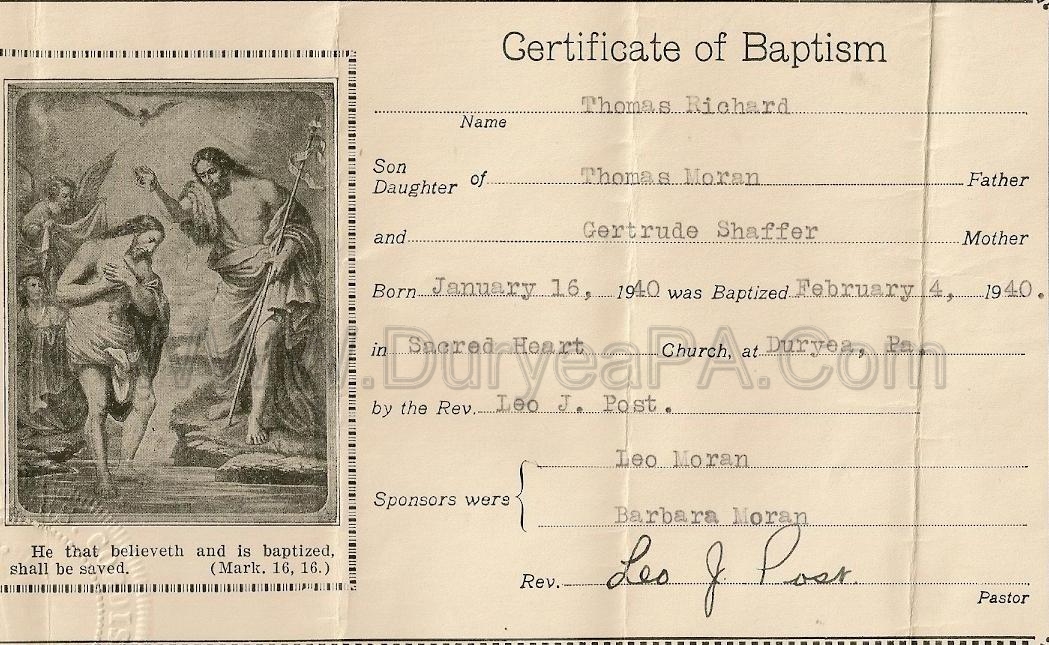 Certificate of Baptism
Thomas Richard
Name
Son
Daughter of Thomas Moran Father
and Gertrude Shaffer Mother
Born January 16, 1940 was Baptized February 4, 1940.
in Sacred Heart Church, at Duryea, Pa.
www.DuryeaPA.Com
by the Rev. Leo J. Post.
Sponsors were
Leo Moran
Barbara Moran
Rev. Leo J Post
Pastor
He that believeth and is baptized,
shall be saved. (Mark. 16, 16.)